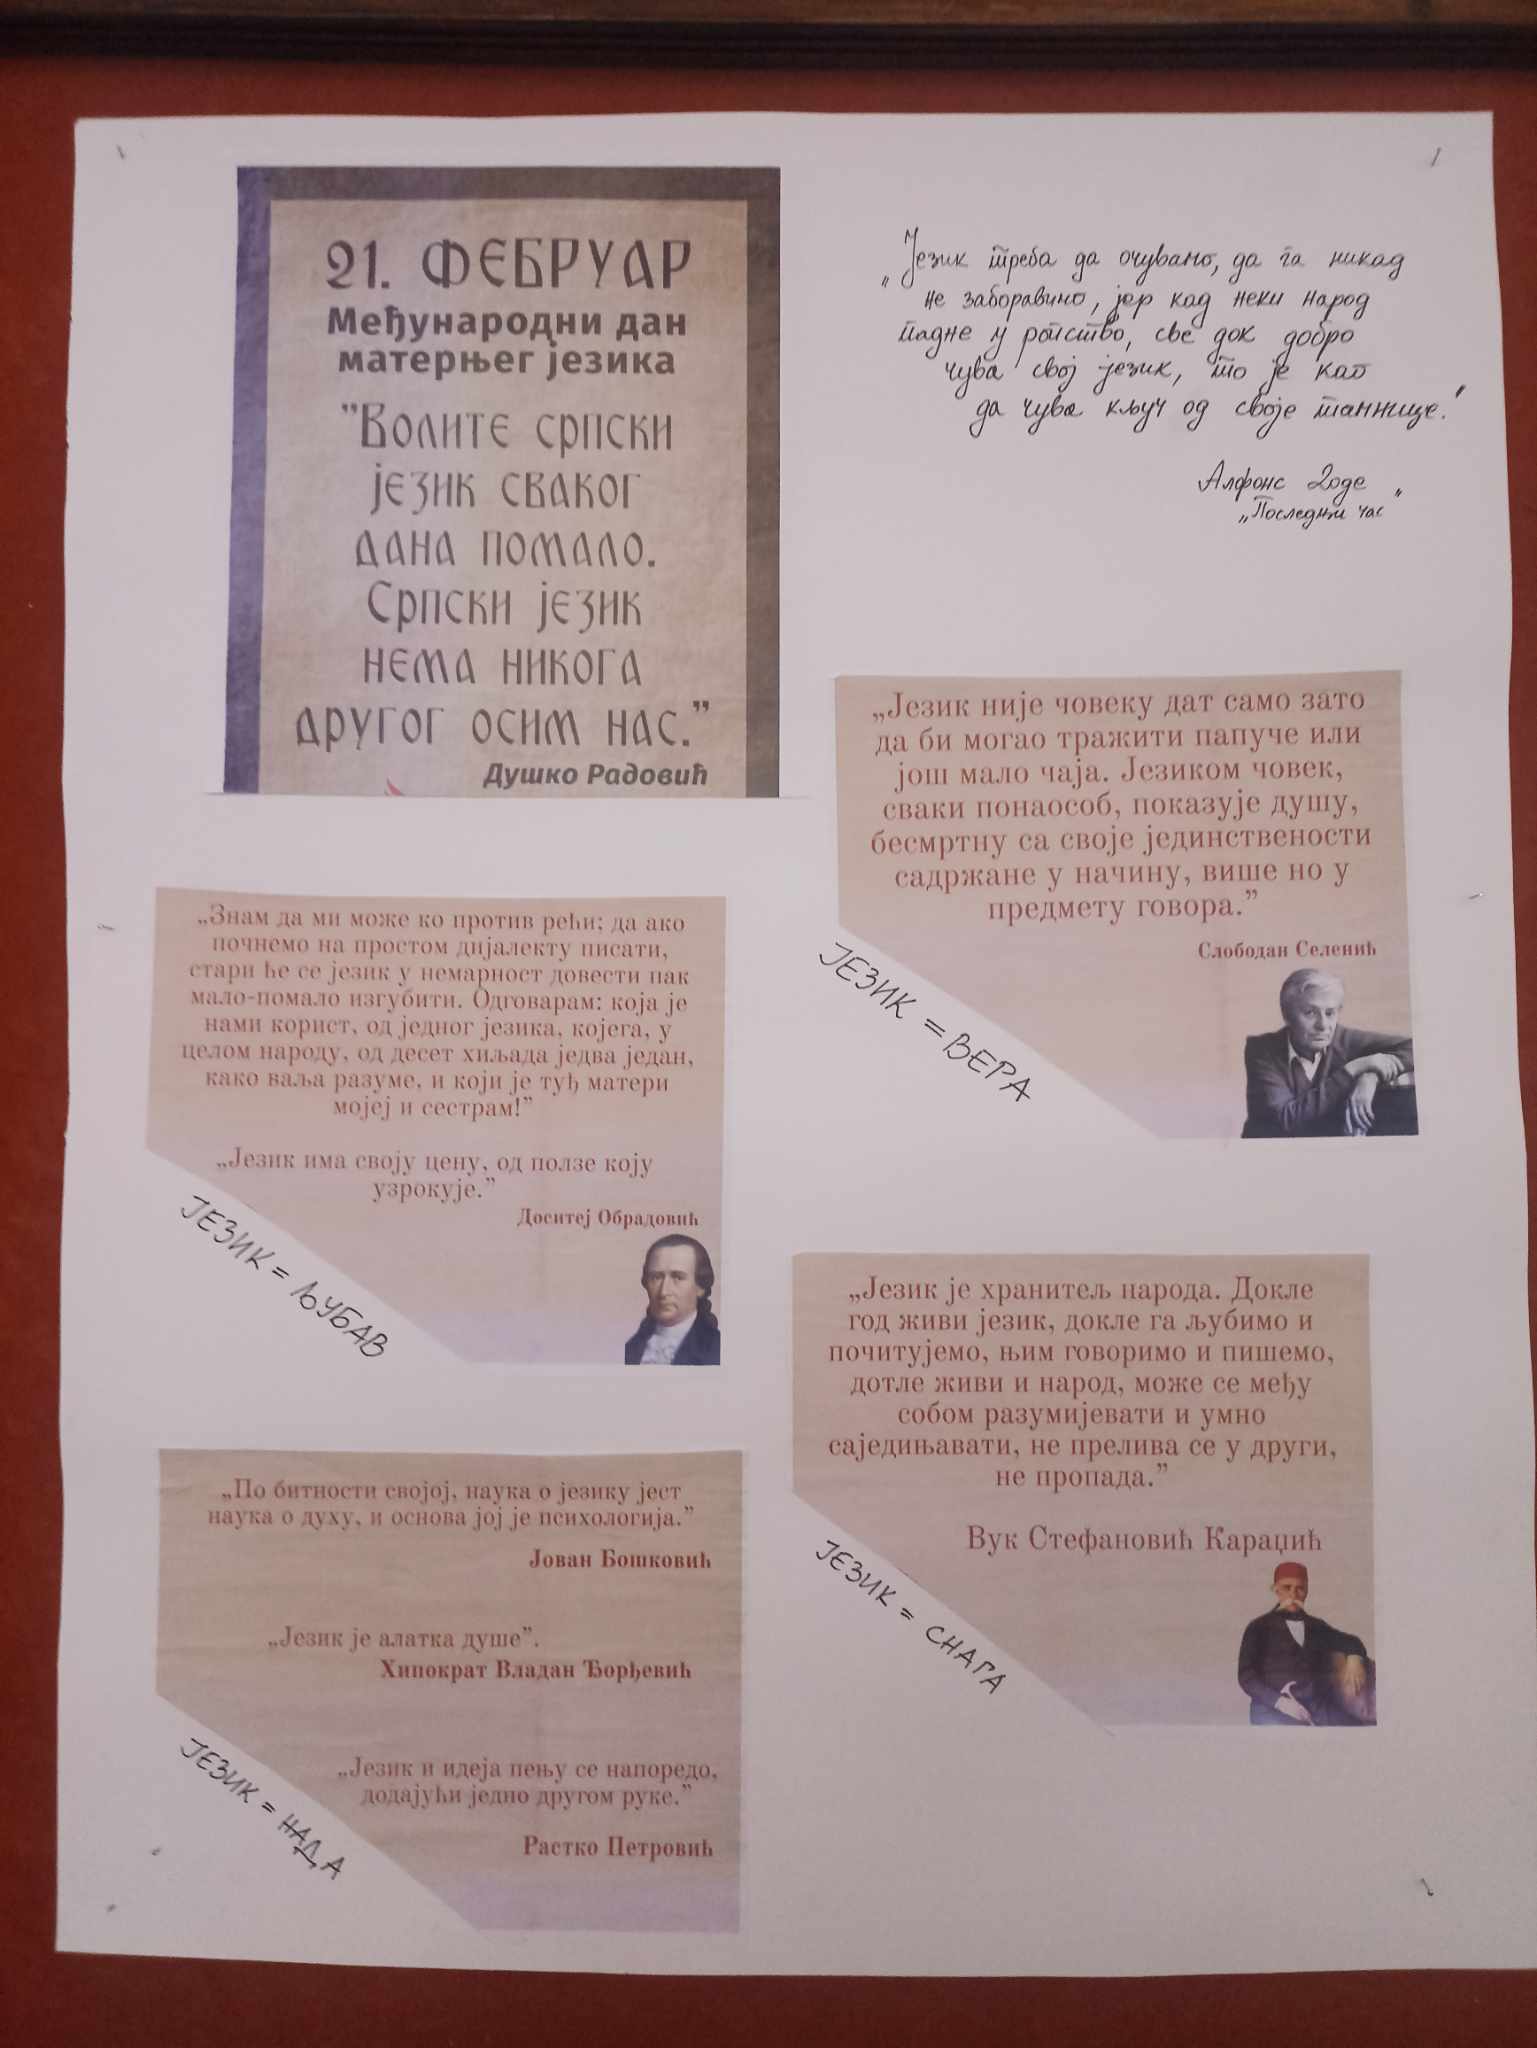 21. ФЕБРУАР
Међународни дан
матерњег језика
"Волите српски
језик сваког
дана помало.
Српски језик
нема никога
другог осим нас."
Душко Радовић
„Језик треба да очувамо, да га никад
не заборавимо, јер кад неки народ
падне у ропство, све док добро
чува свој језик, то је као
да чува кључ од своје тамнице."
Алфонс Доде
„Последњи час"
„Језик није човеку дат само зато
да би могао тражити папуче или
још мало чаја. Језиком човек,
сваки понаособ, показује душу,
бесмртну са своје јединствености
садржане у начину, више но у
предмету говора.”
Слободан Селенић
ЈЕЗИК = ВЕРА
„Знам да ми може ко против рећи; да ако
почнемо на простом дијалекту писати,
стари ће се језик у немарност довести пак
мало-помало изгубити. Одговарам: која је
нами корист, од једног језика, којега, у
целом народу, од десет хиљада једва један,
како ваља разуме, и који је туђ матери
мојеј и сестрам!”
„Језик има своју цену, од ползе коју
узрокује.”
Доситеј Обрадовић
ЈЕЗИК = ЉУБАВ
„Језик је хранитељ народа. Докле
год живи језик, докле га љубимо и
почитујемо, њим говоримо и пишемо,
дотле живи и народ, може се међу
собом разумијевати и умно
саједињавати, не прелива се у други,
не пропада.”
Вук Стефановић Караџић
ЈЕЗИК = СНАГА
„По битности својој, наука о језику јест
наука о духу, и основа јој је психологија.”
Јован Бошковић
„Језик је алатка душе”.
Хипократ Владан Ђорђевић
„Језик и идеја пењу се напоредо,
додајући једно другом руке.”
Растко Петровић
ЈЕЗИК = НАДА